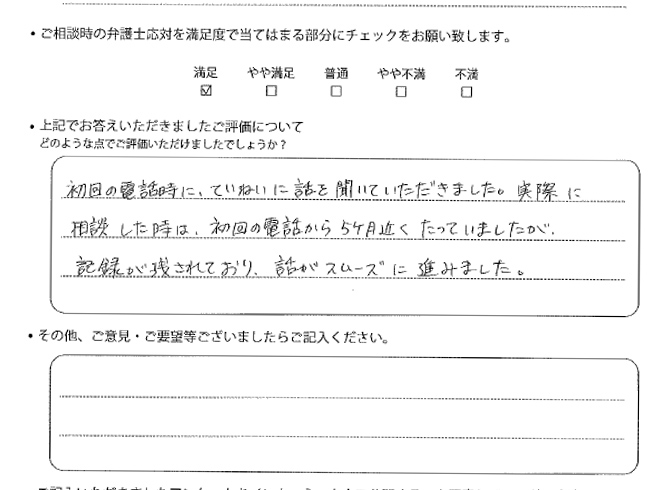 ・ご相談時の弁護士応対を満足度で当てはまる部分にチェックをお願い致します。
満足 やや満足 普通 やや不満 不満
☑ □ □ □ □
・上記でお答えいただきましたご評価について
どのような点でご評価いただけましたでしょうか？
初回の電話時に、ていねいに話を聞いていただきました。実際に
相談した時は、初回の電話から5ヶ月近くたっていましたが、
記録が残されており、話がスムーズに進みました。
・その他、ご意見・ご要望等ございましたらご記入ください。